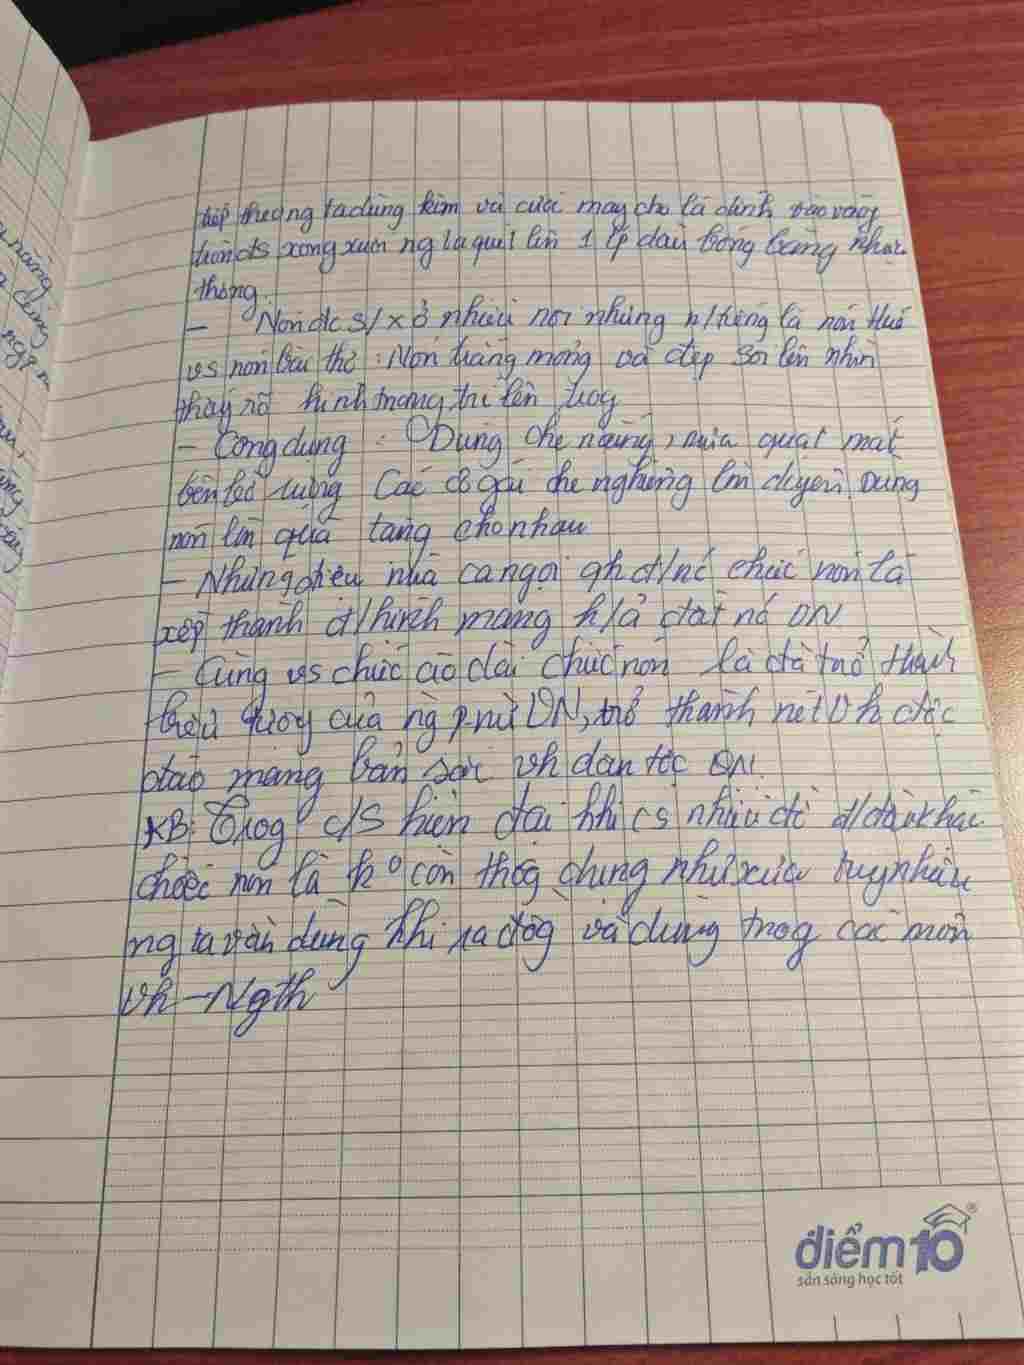 tiếp thường ta dùng kim và cước may cho lá dính vào vòng
xong xuôi ng ta quét lên 1 lớp dầu bóng bằng nhựa
thông
- Nón đc s/x ở nhiều nơi nhưng n/tiếng là nón Huế
vs nón bài thơ : Nón trắng mỏng và đẹp soi lên nhìn
thấy rõ hình trang trí bên trog
- Công dụng : Dùng che nắng, mưa quạt mát
Các cô gái che nghiêng làm duyên. Dùng
nón làm quà tặng cho nhau
- Những điệu múa ca ngợi qh đ/nc chiếc nón lá
xếp thành đ/hình mang h/ả đất nc VN
- Cùng vs chiếc áo dài chiếc nón lá đã trở thành
biểu tượng của ng p.nữ VN, trở thành nét vh độc
đáo mang bản sắc vh dân tộc VN.
KB: Trog c/s hiện đại khi có nhiều đồ
chiếc nón lá k° còn thôg dụng như xưa tuy nhiên
ng ta vẫn dùng khi ra đồg và dùng trog các môn
vh - Ngth
điểm10
sẵn sàng học tốt